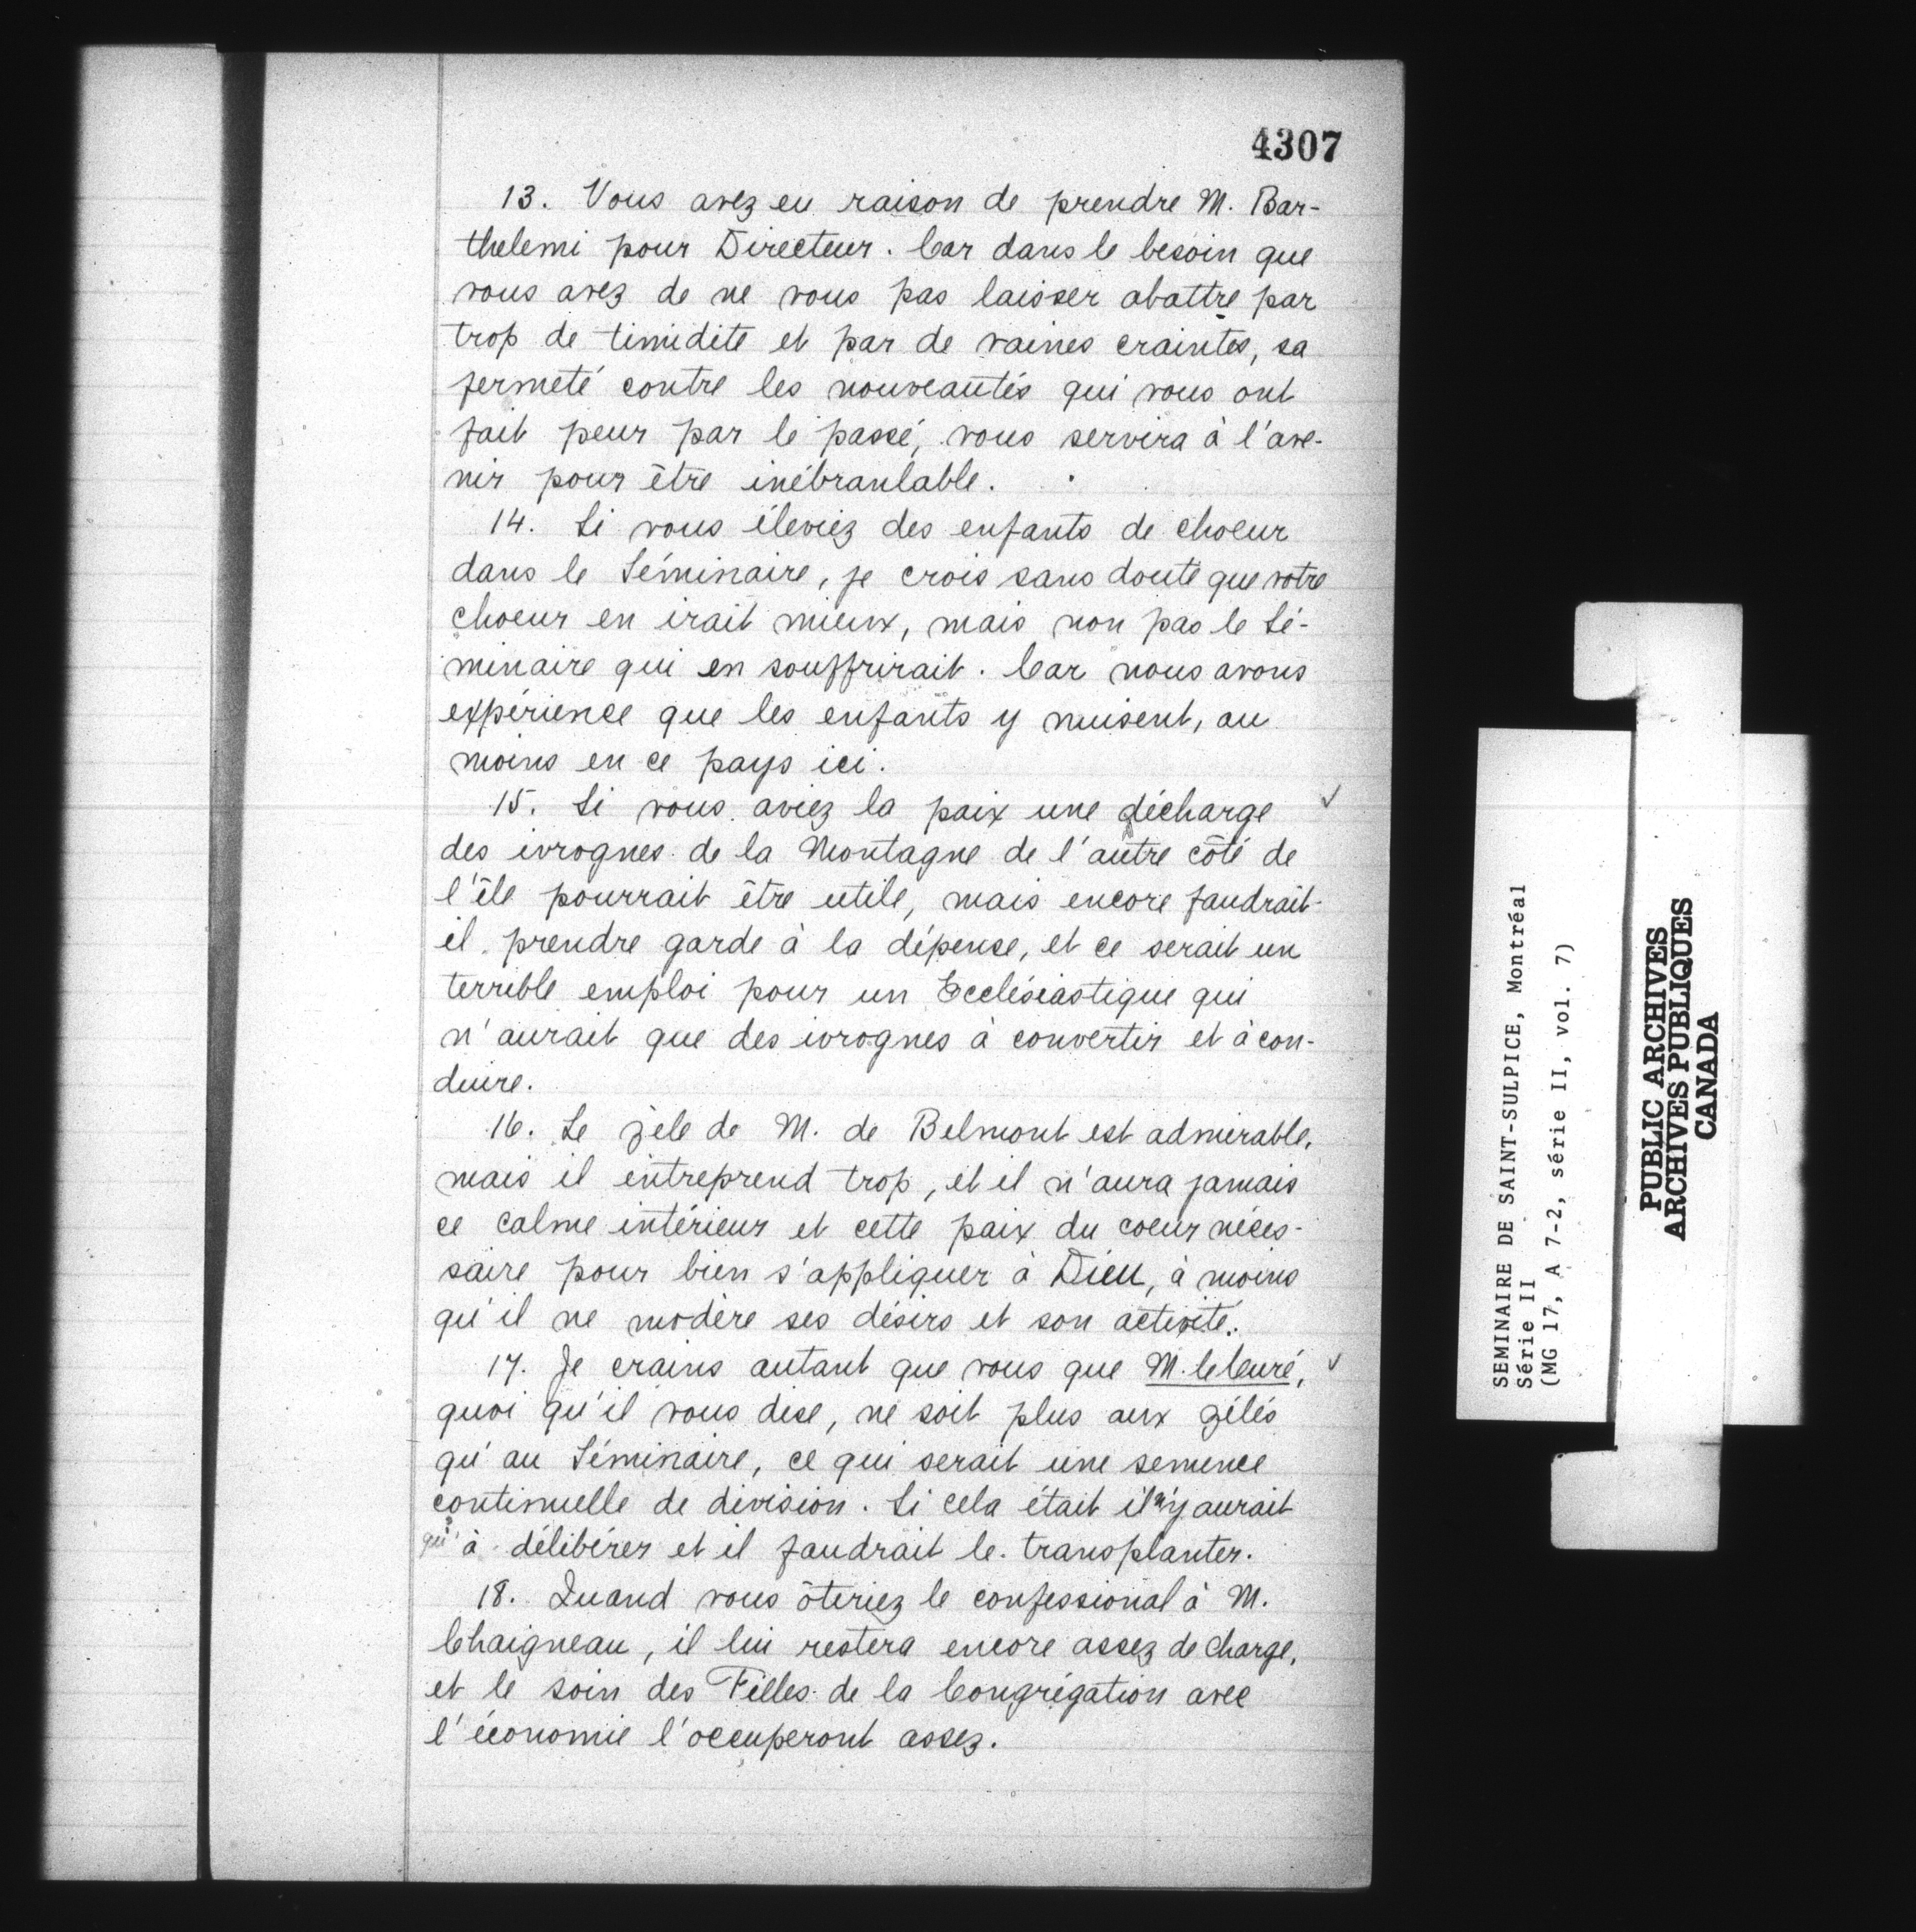 4307
13. Vous avez eu raison de prendre M. Bar-
thelemi pour Directeur. Car dans le besoin que
vous avez de ne vous pas laisser abattre par
trop de timidité et par de vaines craintes, sa
fermeté contre les nouveautés qui vous ont
fait peur par le passé, vous servira à l'ave-
nir pour être inébranlable.
14. Si vous éleviez des enfants de choeur
dans le Séminaire, je crois sans doute que votre
choeur en irait mieux, mais non pas le Sé-
minaire qui en souffrirait. Car nous avons
expérience que les enfants y nuisent, au
moins en ce pays ici.
15. Si vous aviez la paix une décharge ✓
des ivrognes de la Montagne de l'autre côté de
l'île pourrait être utile, mais encore faudrait-
il prendre garde à la dépense, et ce serait un
terrible emploi pour un Ecclésiastique qui
n'aurait que des ivrognes à convertir et à con-
duire.
16. Le zèle de M. de Belmont est admirable,
mais il entreprend trop, et il n'aura jamais
ce calme intérieur et cette paix du coeur néces-
saire pour bien s'appliquer à Dieu, à moins
qu'il ne modère ses désirs et son activité.
17. Je crains autant que vous que M. le Curé, ✓
quoi qu'il vous dise, ne soit plus aux zélés
qu'au Séminaire, ce qui serait une semence
continuelle de division. Si cela était il n'y aurait
qu'à délibérer et il faudrait le transplanter.
18. Quand vous ôteriez le confessional à M.
Chaigneau, il lui restera encore assez de charge,
et le soin des Filles de la Congrégation avec
l'économie l'occuperont assez.
SEMINAIRE DE SAINT-SULPICE, Montréal
Série II
(MG 17, A 7-2, série II, vol. 7)
PUBLIC ARCHIVES
ARCHIVES PUBLIQUES
CANADA